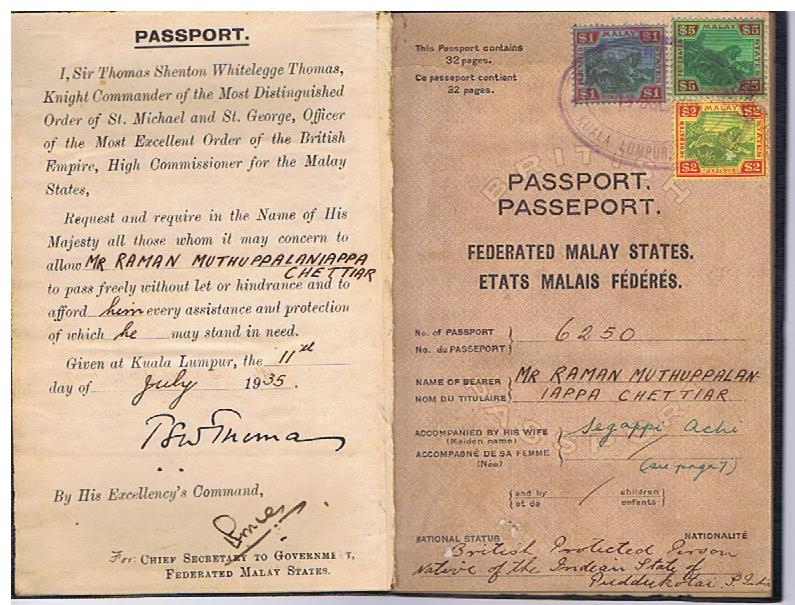 PASSPORT.
I, Sir Thomas Shenton Whitelegge Thomas,
Knight Commander of the Most Distinguished
Order of St. Michael and St. George, Officer
of the Most Excellent Order of the British
Empire, High Commissioner for the Malay
States,
Request and require in the Name of His
Majesty all those whom it may concern to
allow MR RAMAN MUTHUPPALANIAPPA
CHETTIAR
to pass freely without let or hindrance and to
afford him every assistance and protection
of which he may stand in need.
Given at Kuala Lumpur, the 11th
day of July 1935.
TSWThomas
By His Excellency's Command,
For: CHIEF SECRETARY TO GOVERNMENT,
FEDERATED MALAY STATES.
This Passport contains
32 pages.
Ce passeport contient
32 pages.
$1 MALAY $1
FEDERATED STATES
$1 $1
$5 MALAY $5
FEDERATED STATES
$5 $5
$2 MALAY $2
FEDERATED STATES
$2 $2
KUALA LUMPUR
BRITISH
PASSPORT.
PASSEPORT.
FEDERATED MALAY STATES.
ETATS MALAIS FÉDÉRÉS.
No. of PASSPORT } 6250
No. du PASSEPORT
NAME OF BEARER } MR RAMAN MUTHUPPALAN-
NOM DU TITULAIRE IAPPA CHETTIAR
ACCOMPANIED BY HIS WIFE } Segappi Achi
(Maiden name)
ACCOMPAGNÉ DE SA FEMME (see page 7)
(Née)
{ and by / children }
{ et de enfants }
NATIONAL STATUS NATIONALITÉ
British Protected Person
Native of the Indian State of
Puddukotai, S. India